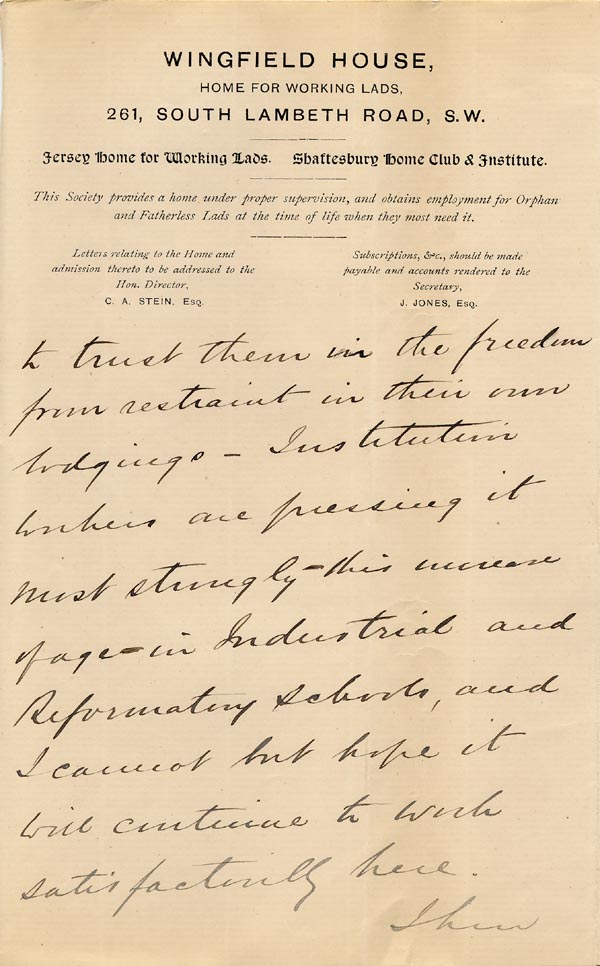 WINGFIELD HOUSE,
HOME FOR WORKING LADS,
261, SOUTH LAMBETH ROAD, S.W.
Jersey Home for Working Lads. Shaftesbury Home Club & Institute.
This Society provides a home under proper supervision, and obtains employment for Orphan
and Fatherless Lads at the time of life when they most need it.
Letters relating to the Home and
admission thereto to be addressed to the
Hon. Director,
C. A. STEIN, Esq.
Subscriptions, &c., should be made
payable and accounts rendered to the
Secretary,
J. JONES, Esq.
to trust them in the freedom
from restraint in their own
lodgings – Institution
workers are pressing it
most strongly – this increase
of age – in Industrial and
Reformatory Schools, and
I cannot but hope it
will continue to work
satisfactorily here.